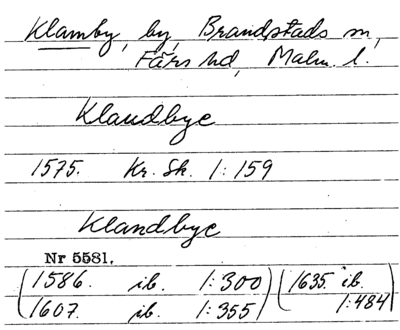 Klamby, by, Brandstads sn,
Färs hd, Malm. l.
Klandbye
1575. Kr. Sk. 1:159
Klandbye
Nr 5581.
(1586. ib. 1:300) (1635. ib.
1607. ib. 1:355) 1:484)